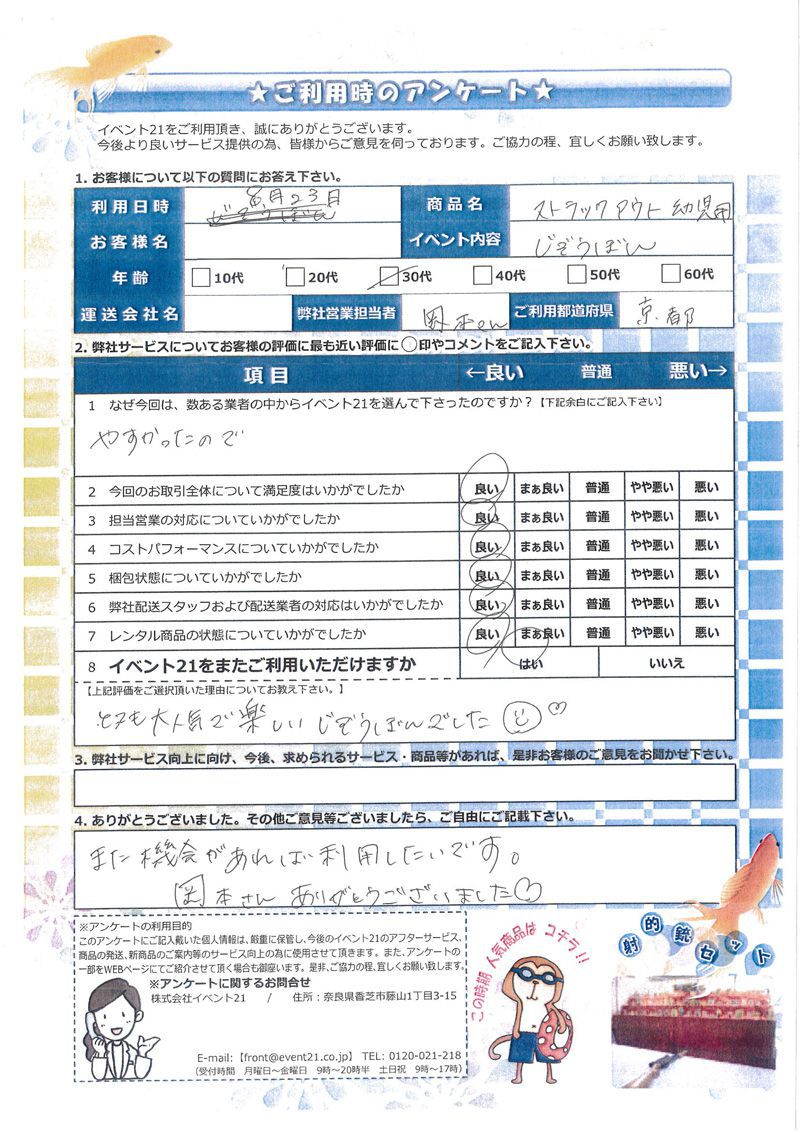 ★ご利用時のアンケート★
イベント21をご利用頂き、誠にありがとうございます。
今後より良いサービス提供の為、皆様からご意見を伺っております。ご協力の程、宜しくお願い致します。
1. お客様について以下の質問にお答え下さい。
利用日時 8月23日 商品名 ストラックアウト 幼児用
じぞうぼん
お客様名 イベント内容 じぞうぼん
年齢 10代 20代 30代 40代 50代 60代
運送会社名 弊社営業担当者 岡本さん ご利用都道府県 京都
2. 弊社サービスについてお客様の評価に最も近い評価に○印やコメントをご記入下さい。
項目 ←良い 普通 悪い→
1 なぜ今回は、数ある業者の中からイベント21を選んで下さったのですか?【下記余白にご記入下さい】
やすかったので
2 今回のお取引全体について満足度はいかがでしたか 良い まぁ良い 普通 やや悪い 悪い
3 担当営業の対応についていかがでしたか 良い まぁ良い 普通 やや悪い 悪い
4 コストパフォーマンスについていかがでしたか 良い まぁ良い 普通 やや悪い 悪い
5 梱包状態についていかがでしたか 良い まぁ良い 普通 やや悪い 悪い
6 弊社配送スタッフおよび配送業者の対応はいかがでしたか 良い まぁ良い 普通 やや悪い 悪い
7 レンタル商品の状態についていかがでしたか 良い まぁ良い 普通 やや悪い 悪い
8 イベント21をまたご利用いただけますか はい いいえ
【上記評価をご選択頂いた理由についてお教え下さい。】
とても大人気で楽しいじぞうぼんでした
3. 弊社サービス向上に向け、今後、求められるサービス・商品等があれば、是非お客様のご意見をお聞かせ下さい。
4. ありがとうございました。その他ご意見等ございましたら、ご自由にご記載下さい。
また機会があれば利用したいです。
岡本さん ありがとうございました♡
※アンケートの利用目的
このアンケートにご記入戴いた個人情報は、厳重に保管し、今後のイベント21のアフターサービス、
商品の発送、新商品のご案内等のサービス向上の為に使用させて頂きます。また、アンケートの
一部をWEBページにてご紹介させて頂く場合も御座います。是非、ご協力の程、宜しくお願い致します。
※アンケートに関するお問合せ
株式会社イベント21 / 住所:奈良県香芝市藤山1丁目3-15
E-mail:【front@event21.co.jp】 TEL: 0120-021-218
(受付時間 月曜日~金曜日 9時~20時半 土日祝 9時~17時)
この時期 人気商品は コチラ!!
射的銃セット